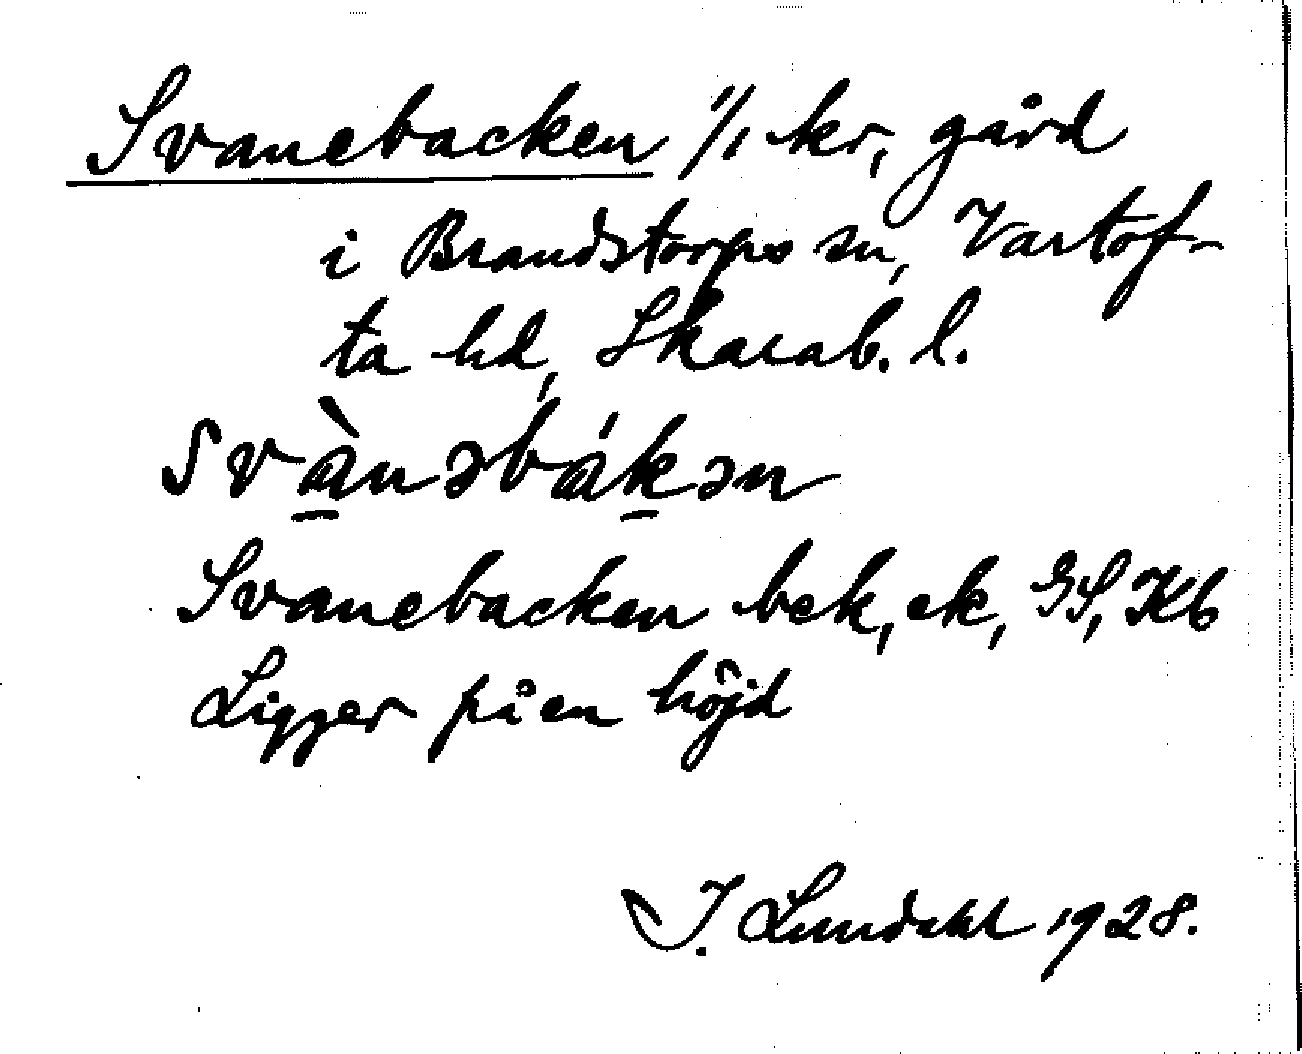 Svanebacken 1/1 kr, gård
i Brandstorps sn, Vartof-
ta hd, Skarab. l.
svànəbákən
Svanebacken bek, ek, GS, Kb
Ligger på en höjd
I. Lundahl 1928.